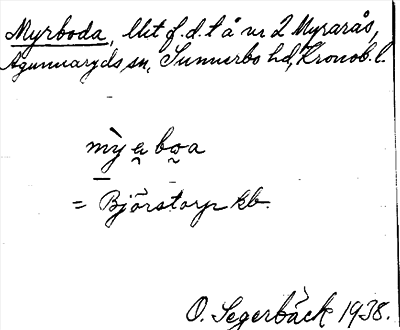 Myrboda, llit f.d.t å nr 2 Myrarås,
Agunnaryds sn, Sunnerbo hd, Kronob. l.
mỳ a̰ bo̰a
= Björstorp kb.
O. Segerbäck 1938.